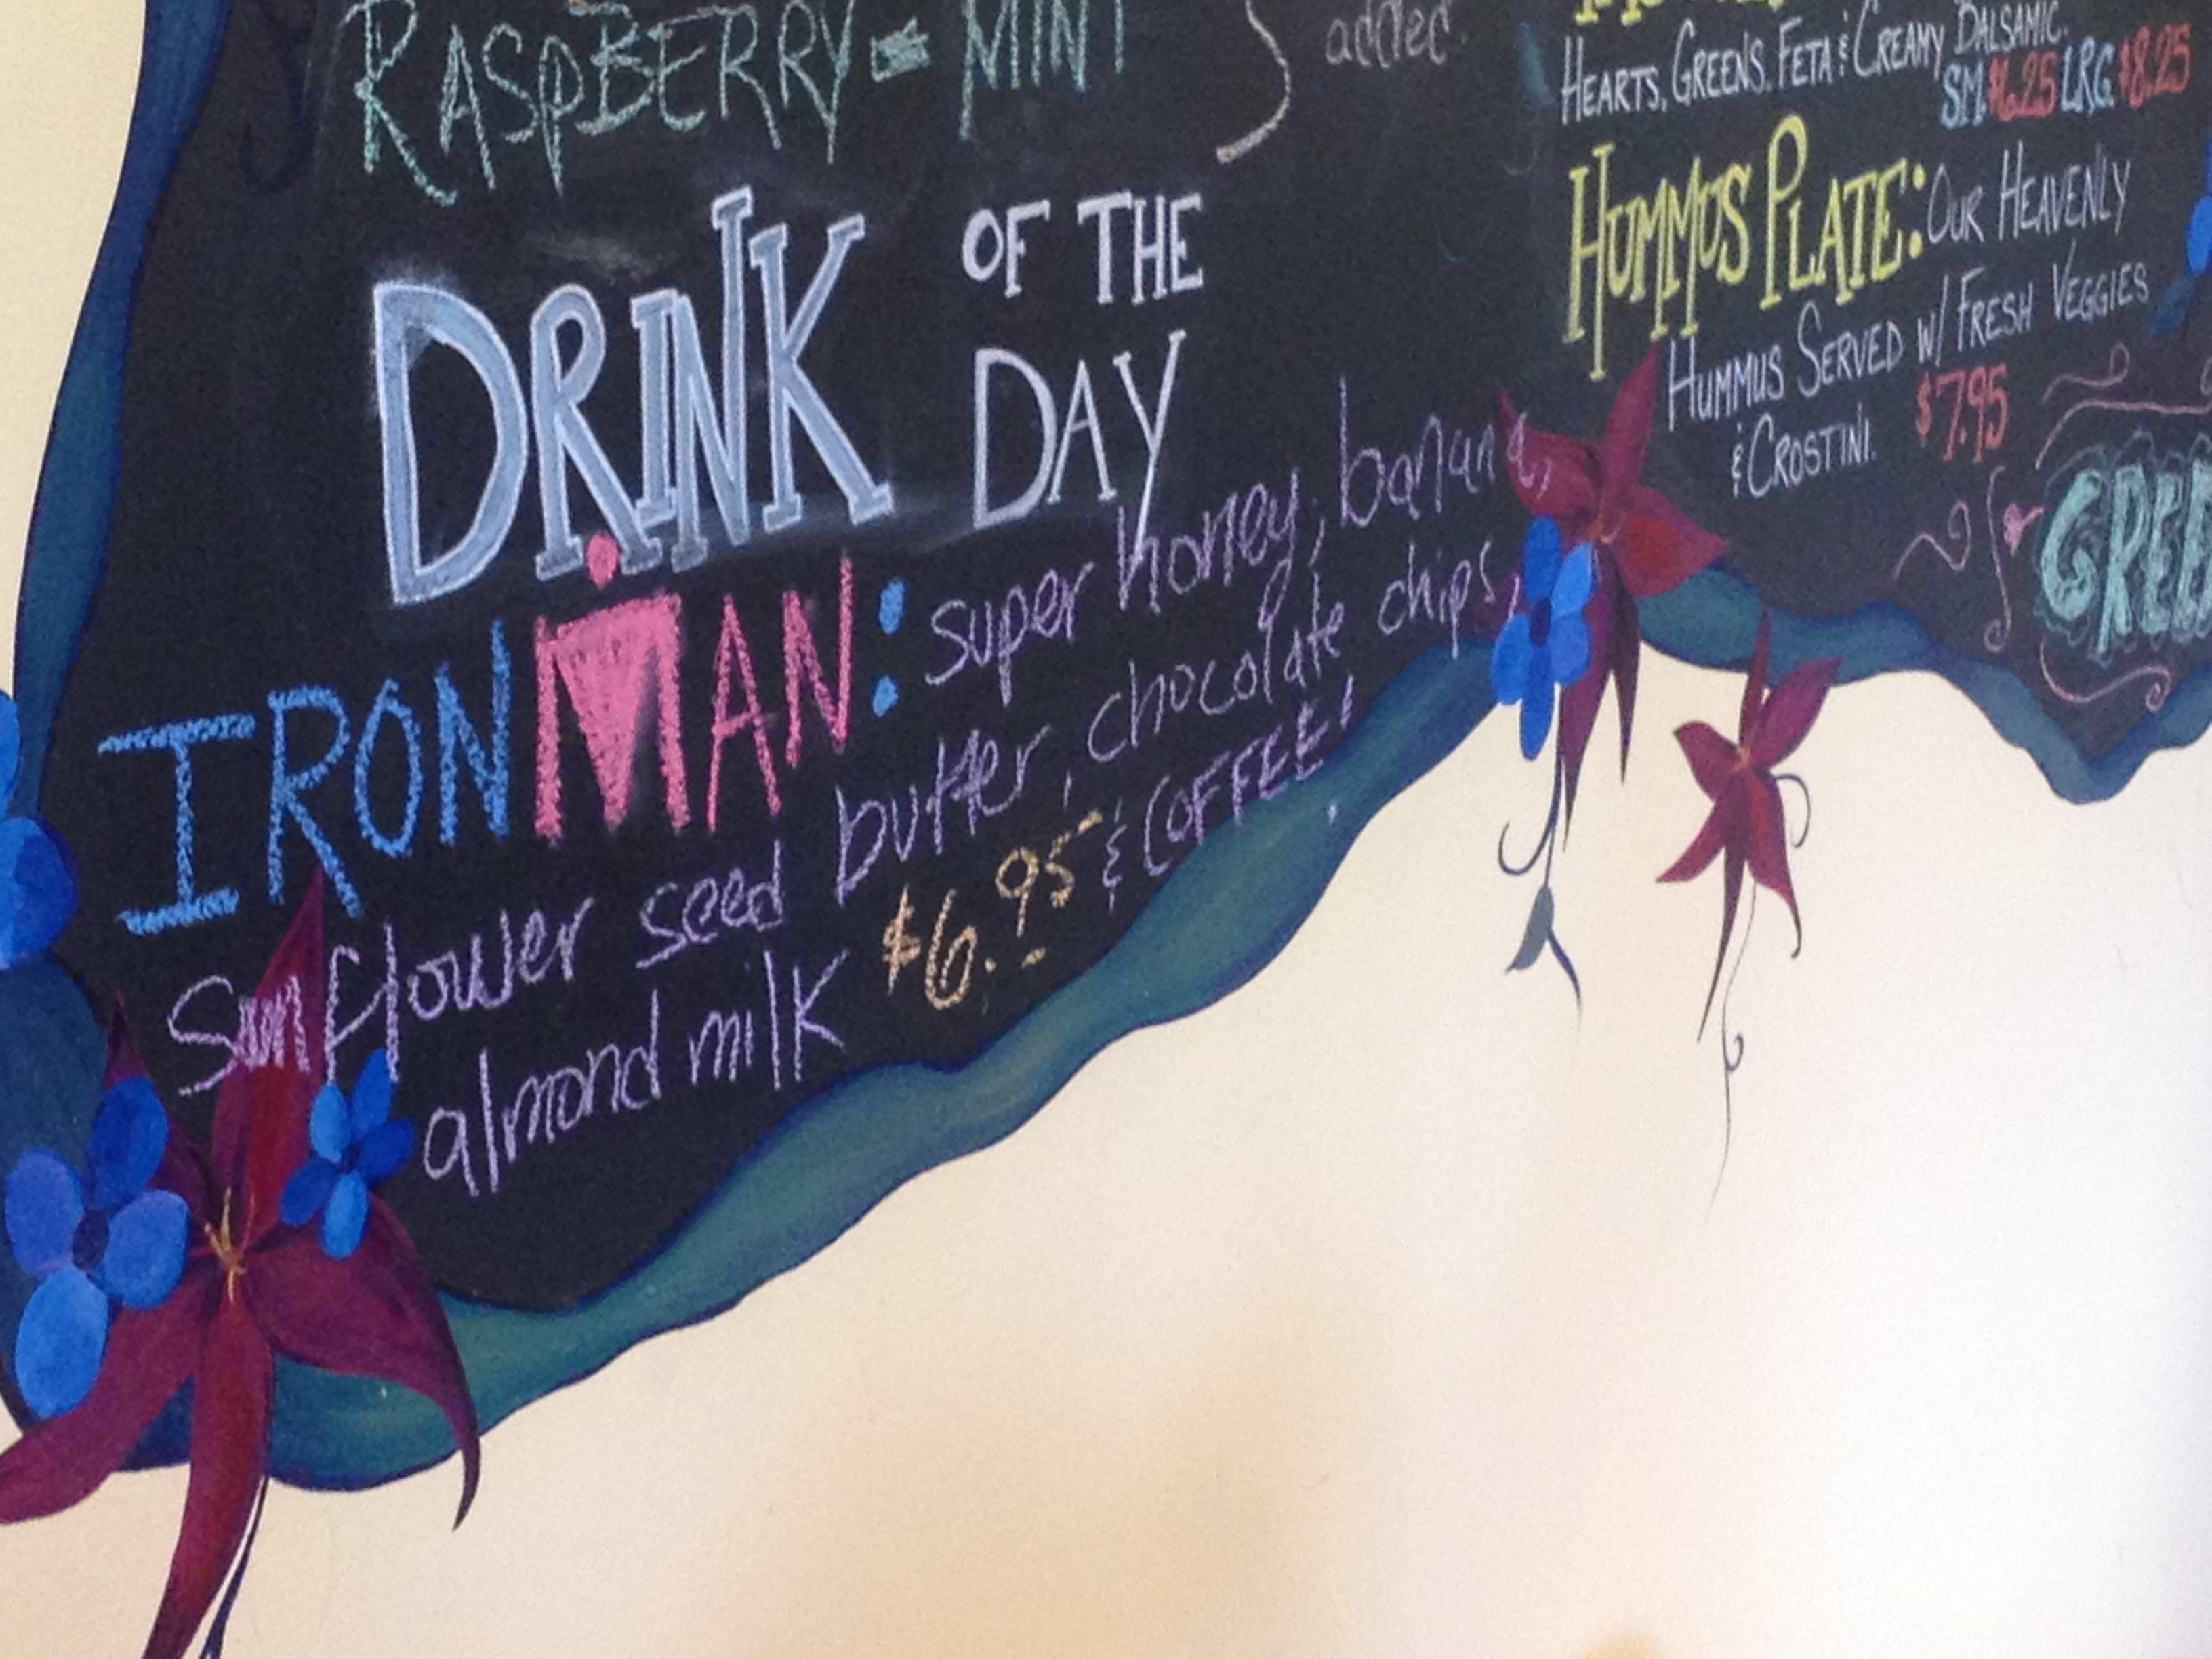 RASPBERRY - MINT
added
DRINK OF THE
DAY
IRONMAN: super honey, banana,
Sunflower seed butter, chocolate chips,
almond milk $6.95 & COFFEE!
HEARTS, GREENS, FETA & CREAMY BALSAMIC.
SM. $6.25 LRG. $8.25
HUMMUS PLATE: OUR HEAVENLY
HUMMUS SERVED W/ FRESH VEGGIES
& CROSTINI. $7.95